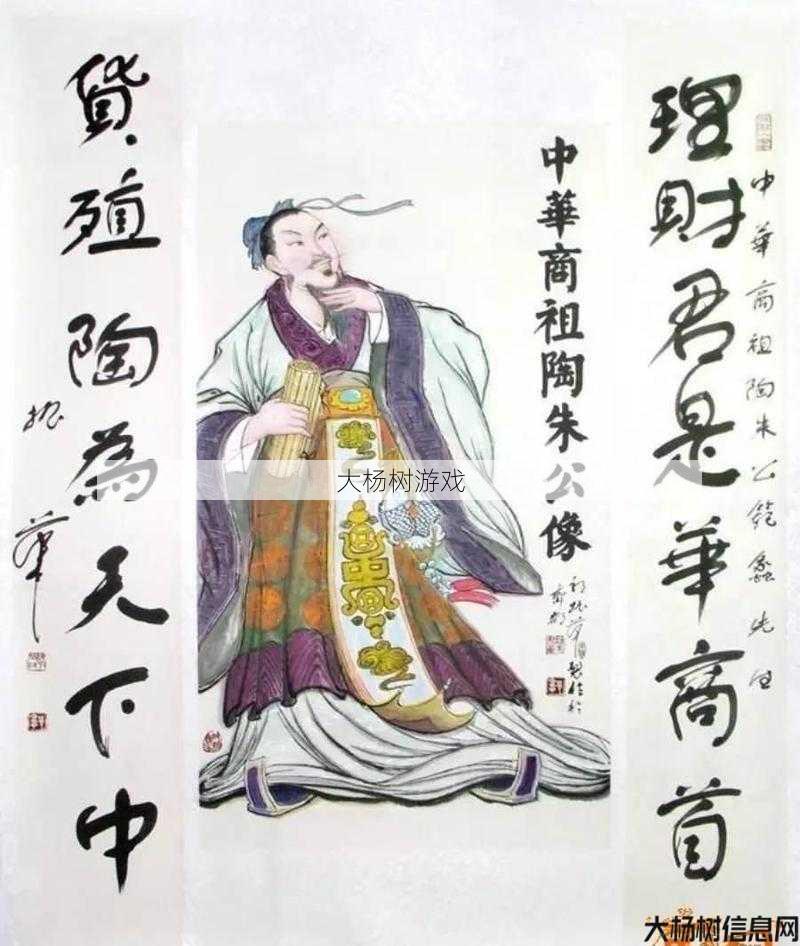 理財君是華商首
中華商祖陶朱公範蠡先生
中華商祖陶朱公像
貨殖陶為天下中
振華
大杨树游戏
大杨树信息网